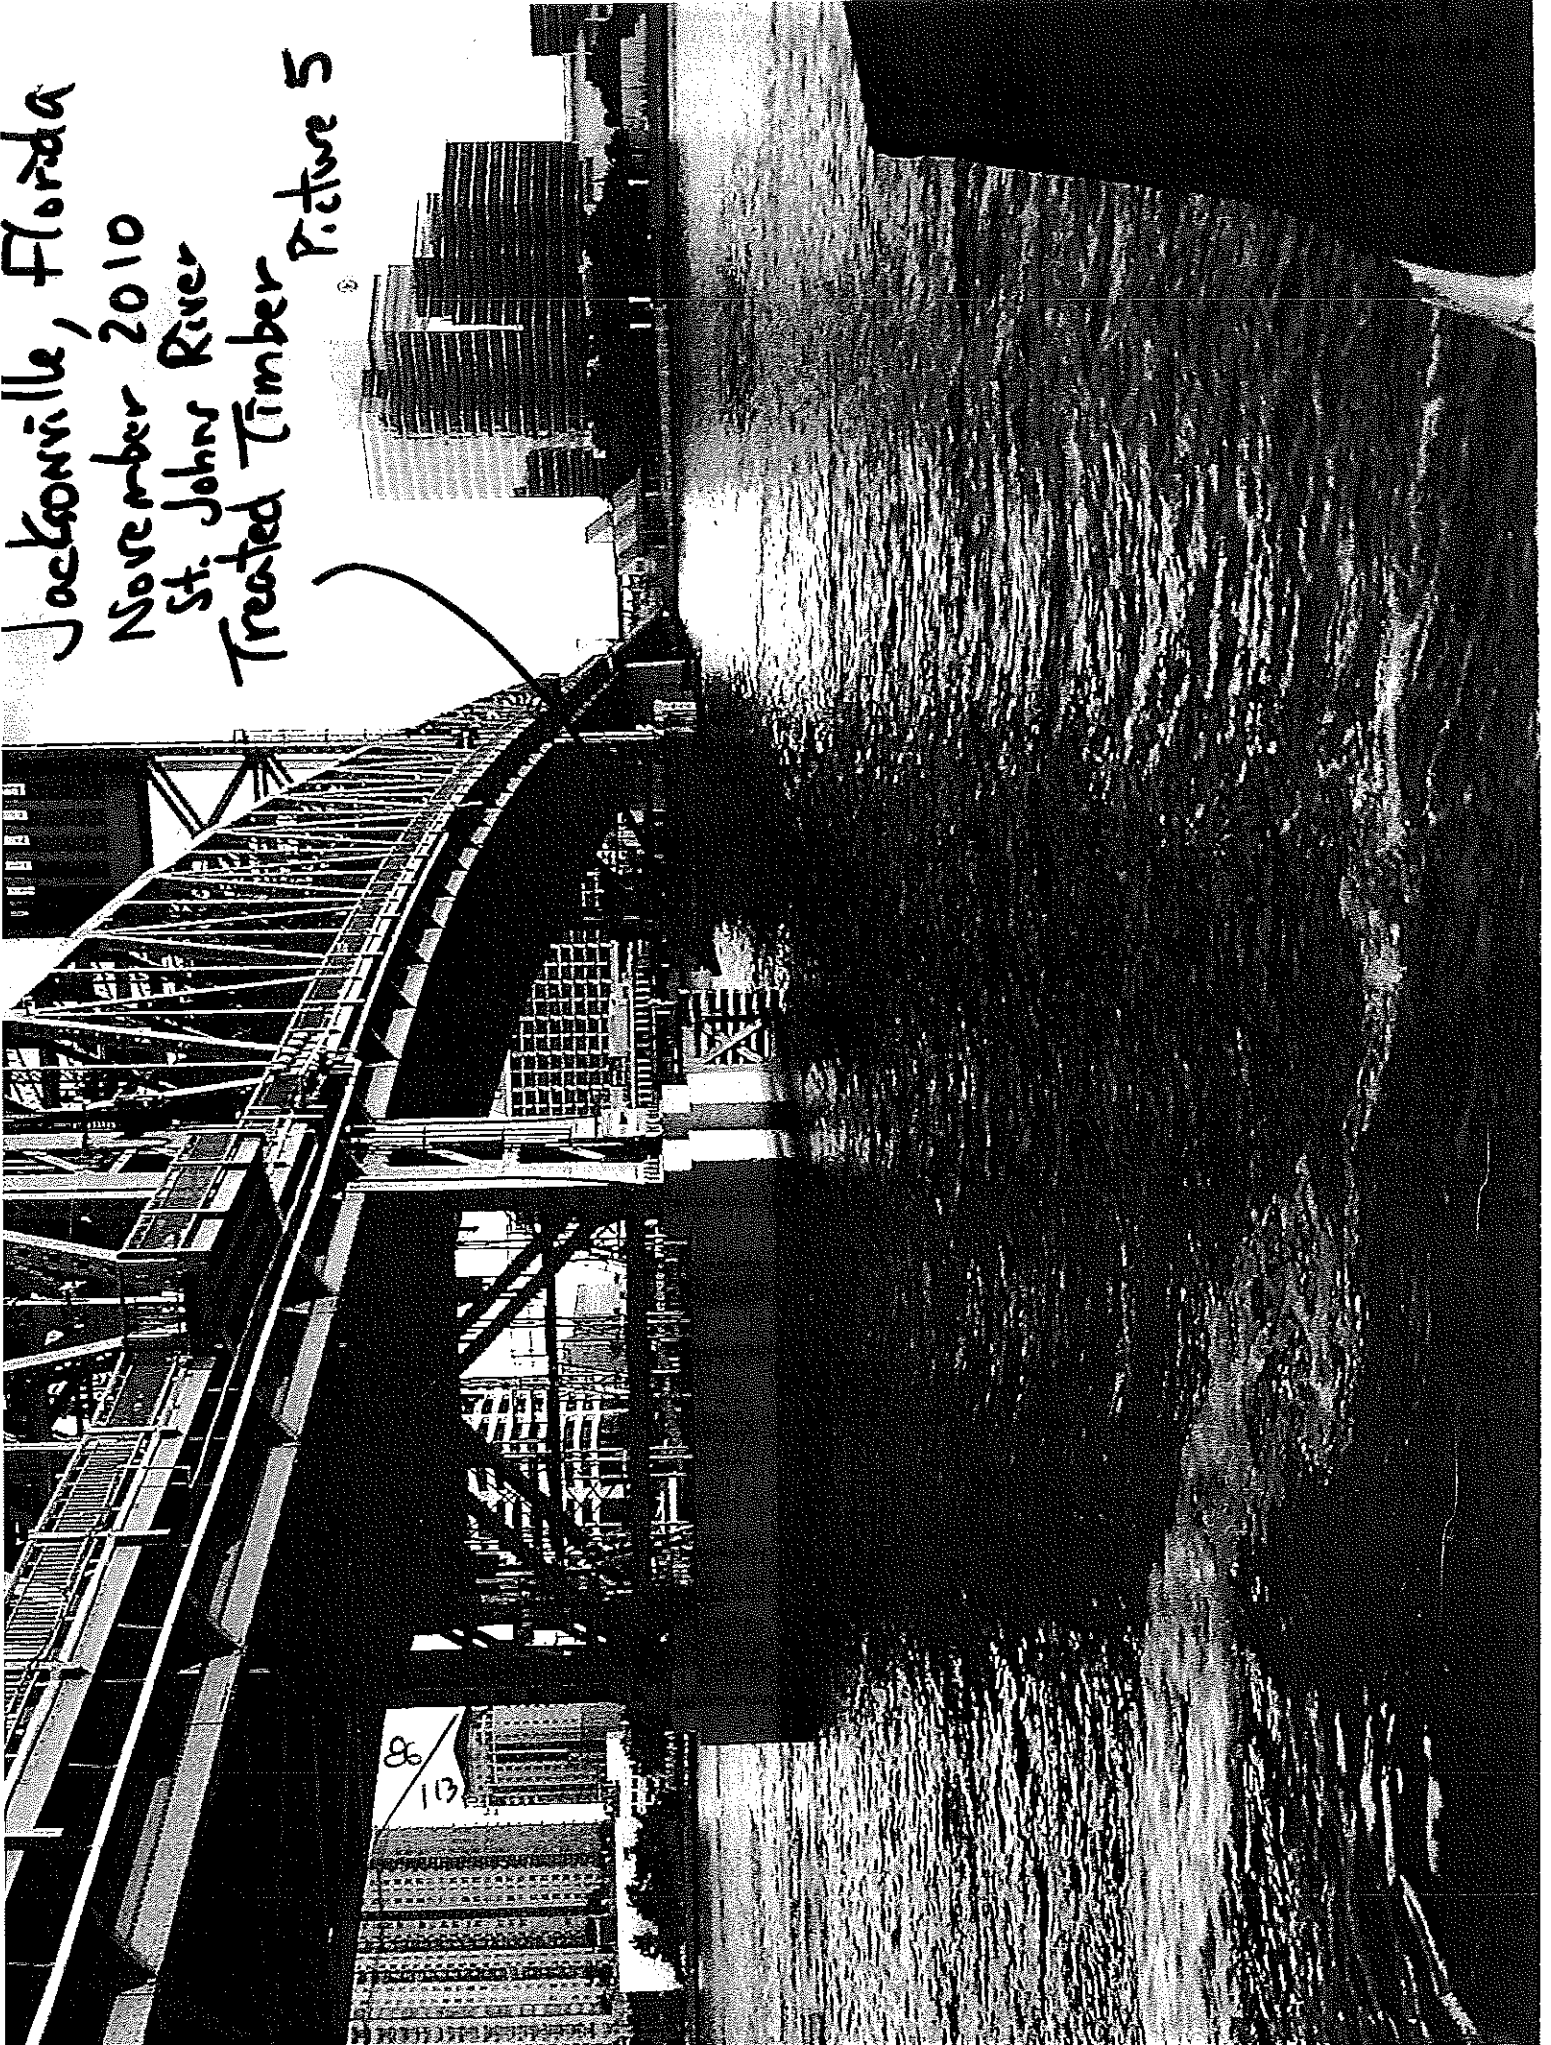 Jacksonville, Florida
November 2010
St. Johns River
Treated Timber
Picture 5
86
113